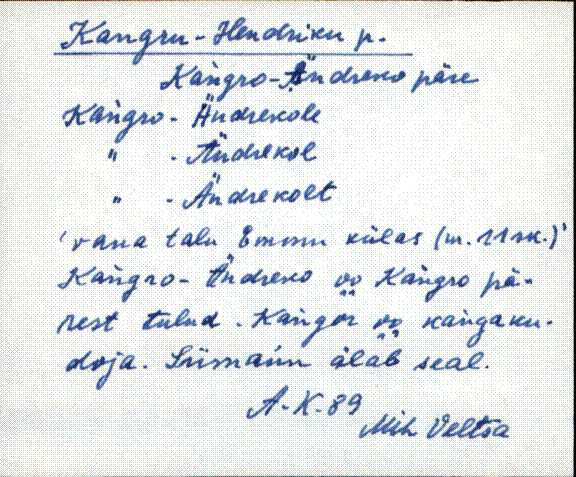 Kangru-Hendriku p.
Kàngro-Ändreko päre
Kàngro- Ändrekole
" - Ändrekol
" - Ändrekolt
'vana talu Emmu külas (m. 11 sk.)'
Kàngro- Ändreko oo Kàngro pä-
rest tulnd. Kàngor oo kàngaku-
doja. Siimànn älàb seal.
A-K-89
Mih Veltsa